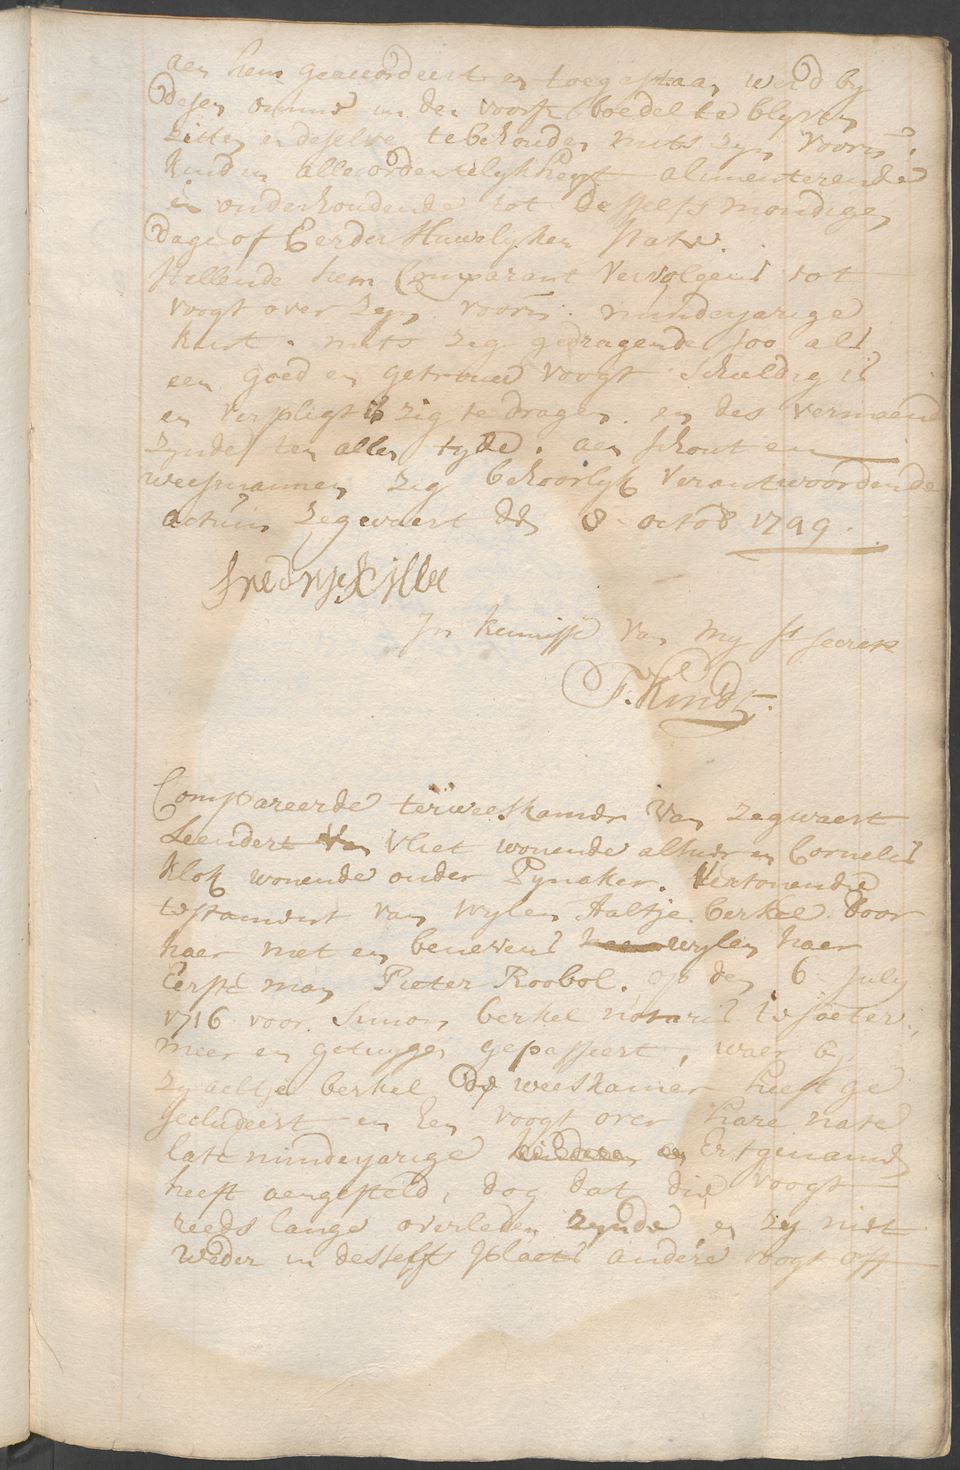 aen hem geaccordeert en toegestaan werd by
desen omme in den voorsz boedel te blyven
zitten en deselve te behouden mits zyn voorn.
kind in alle ordentelykheyt alimenterende
en onderhoudende tot desselfs mondige
dage of Eerder Huwelyken state.
stellende hem Comparant vervolgens tot
voogt over zyn voorn. minderjarige
kint. mits zig gedragende soo als
een goed en getrouw voogt schuldig is
en verpligt is zig te dragen en des vermaend
zynde ten allen tyde. aen schout en
weesmannen zig behoorlyk verantwoordende
actum Zegwaert den 8 octob 1799.
In kennisse van my st secrets
F. Kind
Compareerde ter weeskamer van Zegwaert
Leendert van Vliet wonende alhier en Cornelis
Klok wonende onder Pynaker. vertonende
testament van wylen Aaltje berkel door
haer met en benevens wylen haer
Eerste man Pieter Roobol. op den 6 July
1716 voor Simon berkel notaris te soeter
meer en getuygen gepasseert, waer by
zy aeltje berkel de weeskamer heeft ge
secludeert en een voogt over hare nate
late minderjarige kinderen en Erfgenamen
heeft aengesteld, dog dat die voogt
reeds lange overleden zynde en zy niet
weder in desselfs plaets andere voogt off